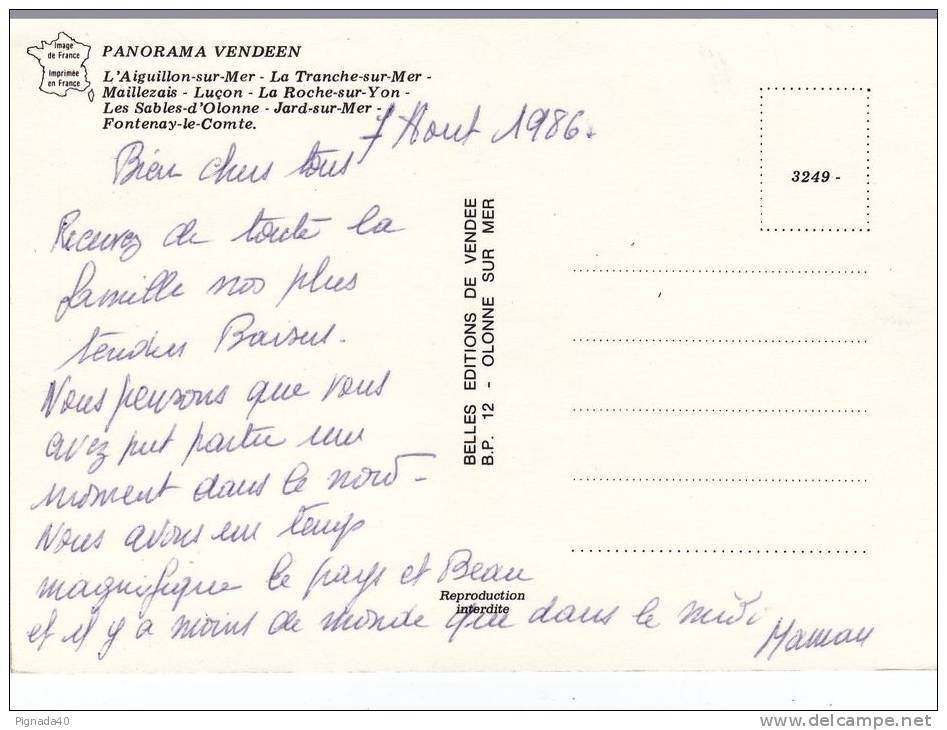 Image
de France
Imprimée
en France
PANORAMA VENDEEN
L'Aiguillon-sur-Mer - La Tranche-sur-Mer -
Maillezais - Luçon - La Roche-sur-Yon -
Les Sables-d'Olonne - Jard-sur-Mer -
Fontenay-le-Comte.
7 Aout 1986.
Bien chers tous
Recevez de toute la
famille nos plus
tendres Baisers.
Nous pensons que vous
avez put partir un
moment dans le nord -
Nous avons un temps
magnifique le pays et Beau
et il y a moins de monde que dans le midi
Maman
BELLES EDITIONS DE VENDEE
B.P. 12 - OLONNE SUR MER
Reproduction
interdite
3249 -
Pignada40
www.delcampe.net